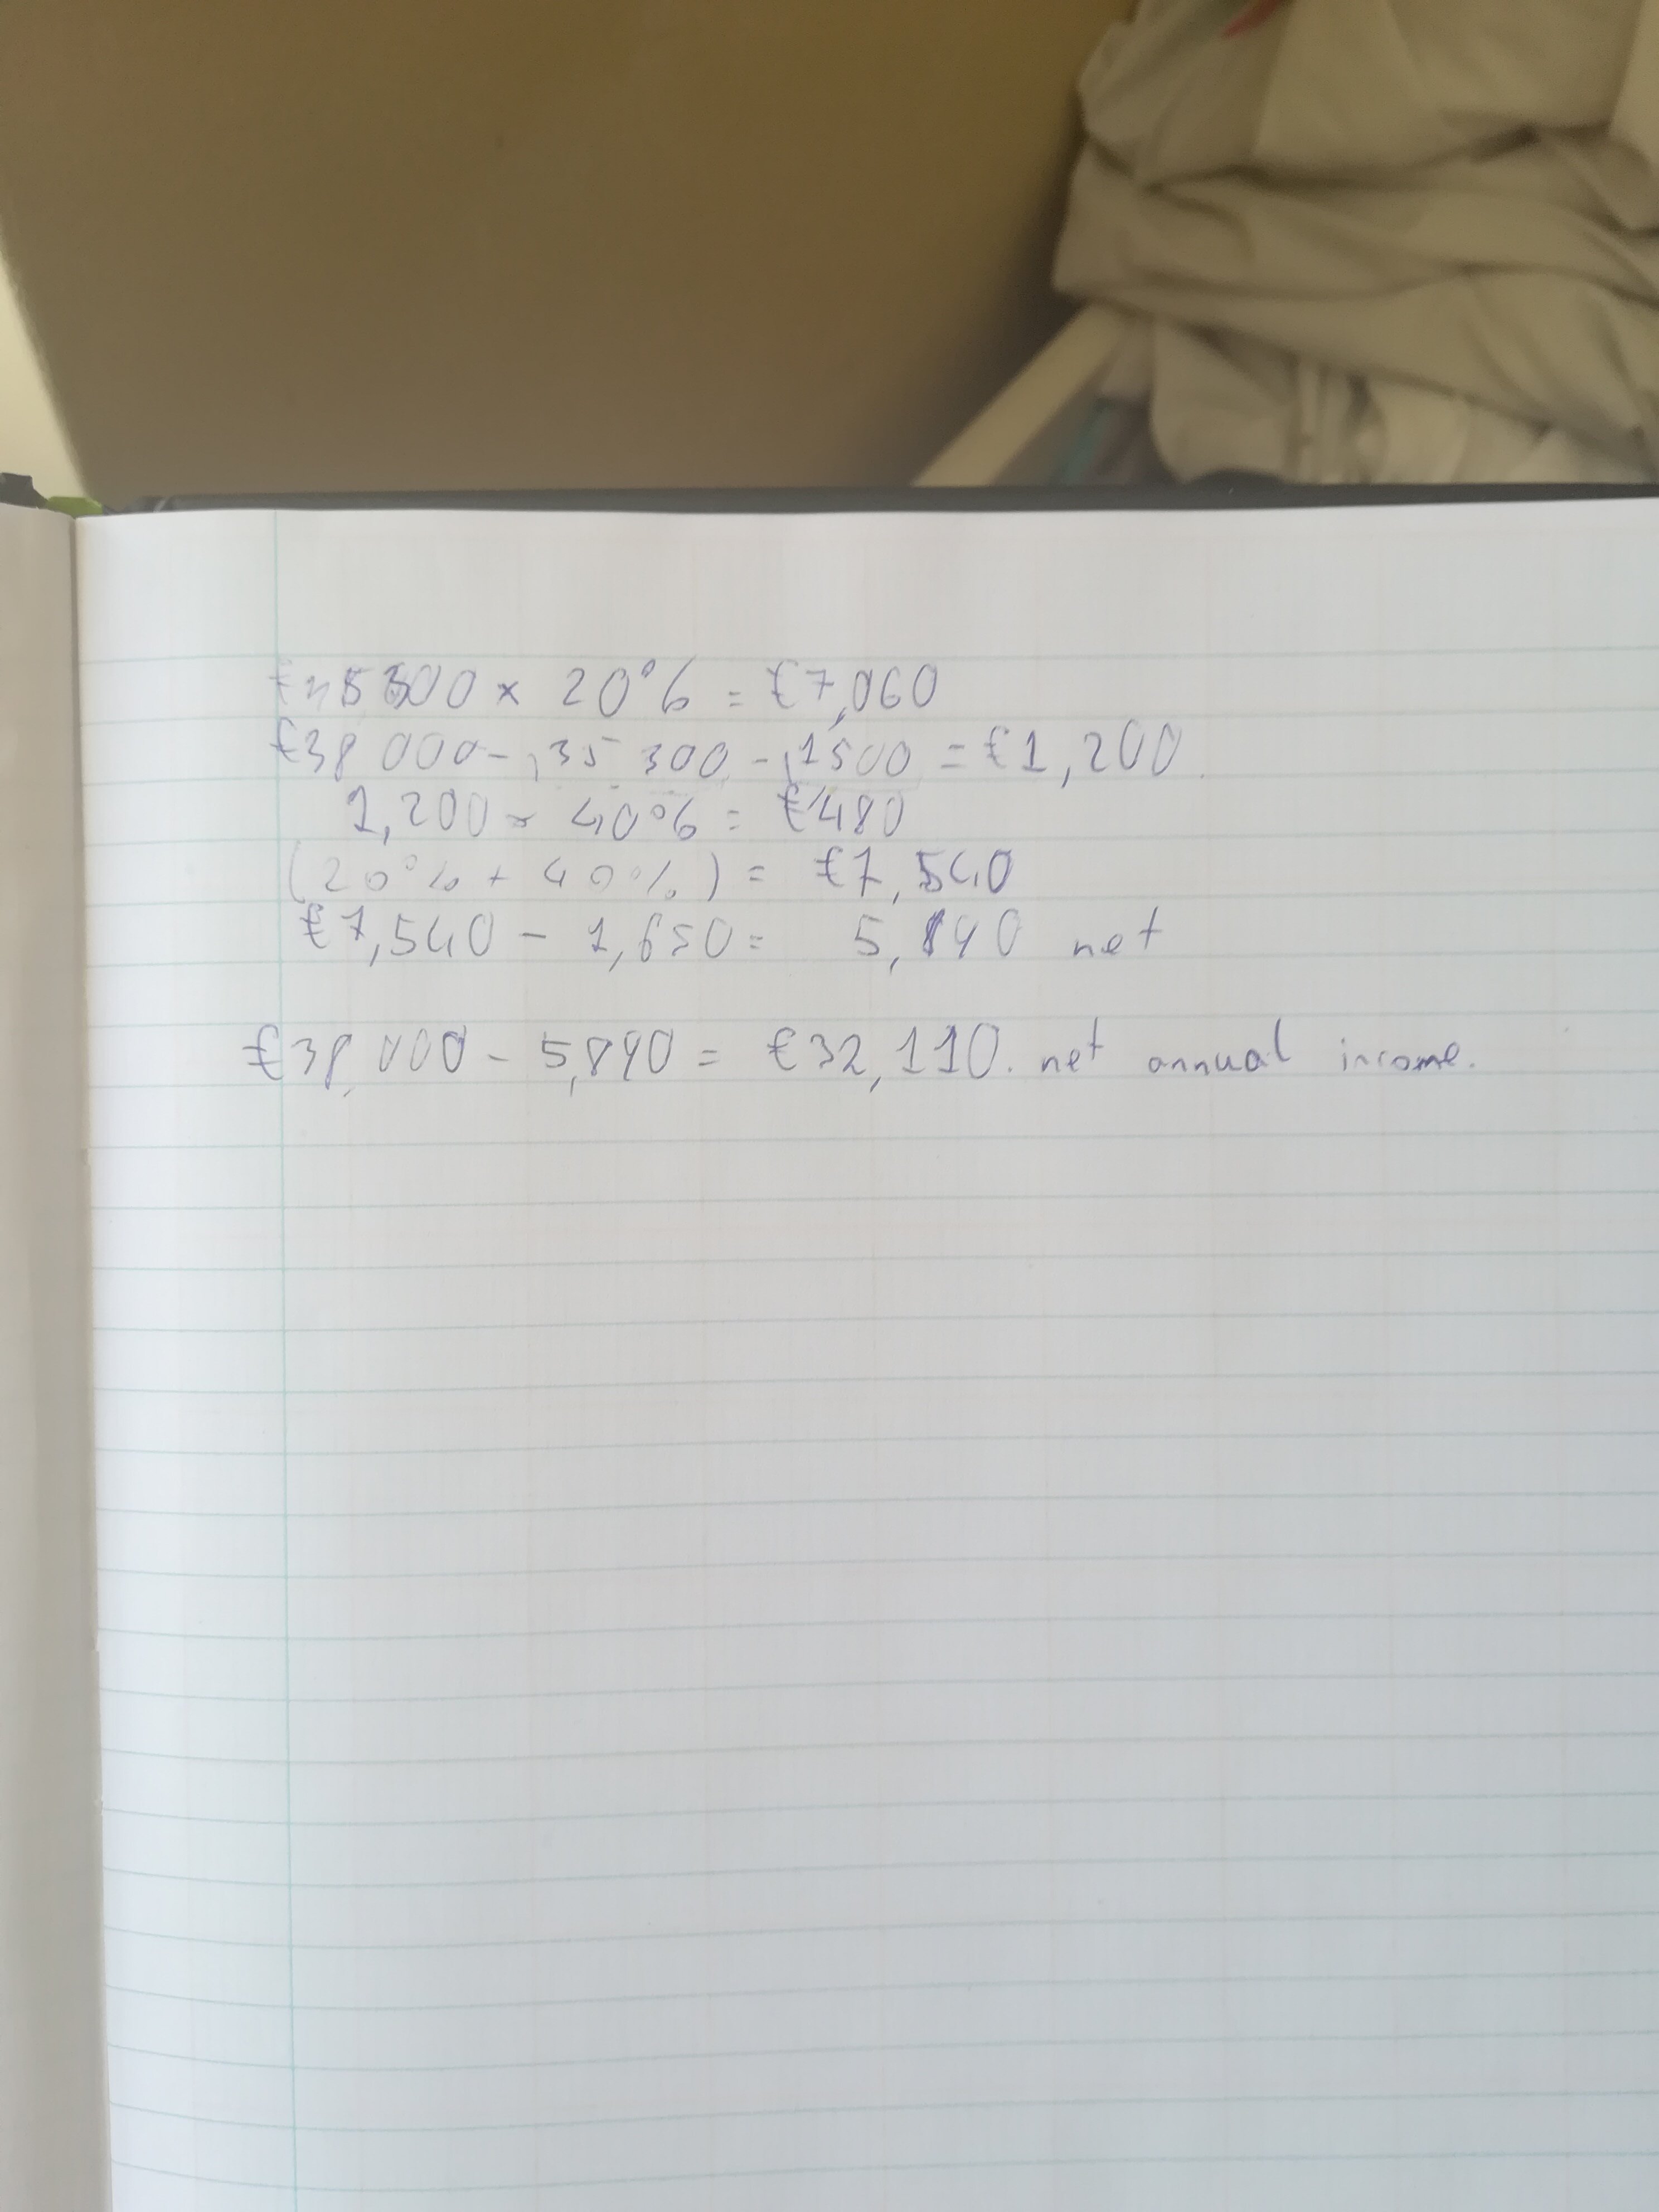 €35300 x 20% = €7,060
€38 000 - 35 300 - 1500 = €1,200.
1,200 x 40% = €480
(20% + 40%) = €7,540
€7,540 - 1,650 = 5,890 net
€38,000 - 5,890 = €32,110. net annual income.